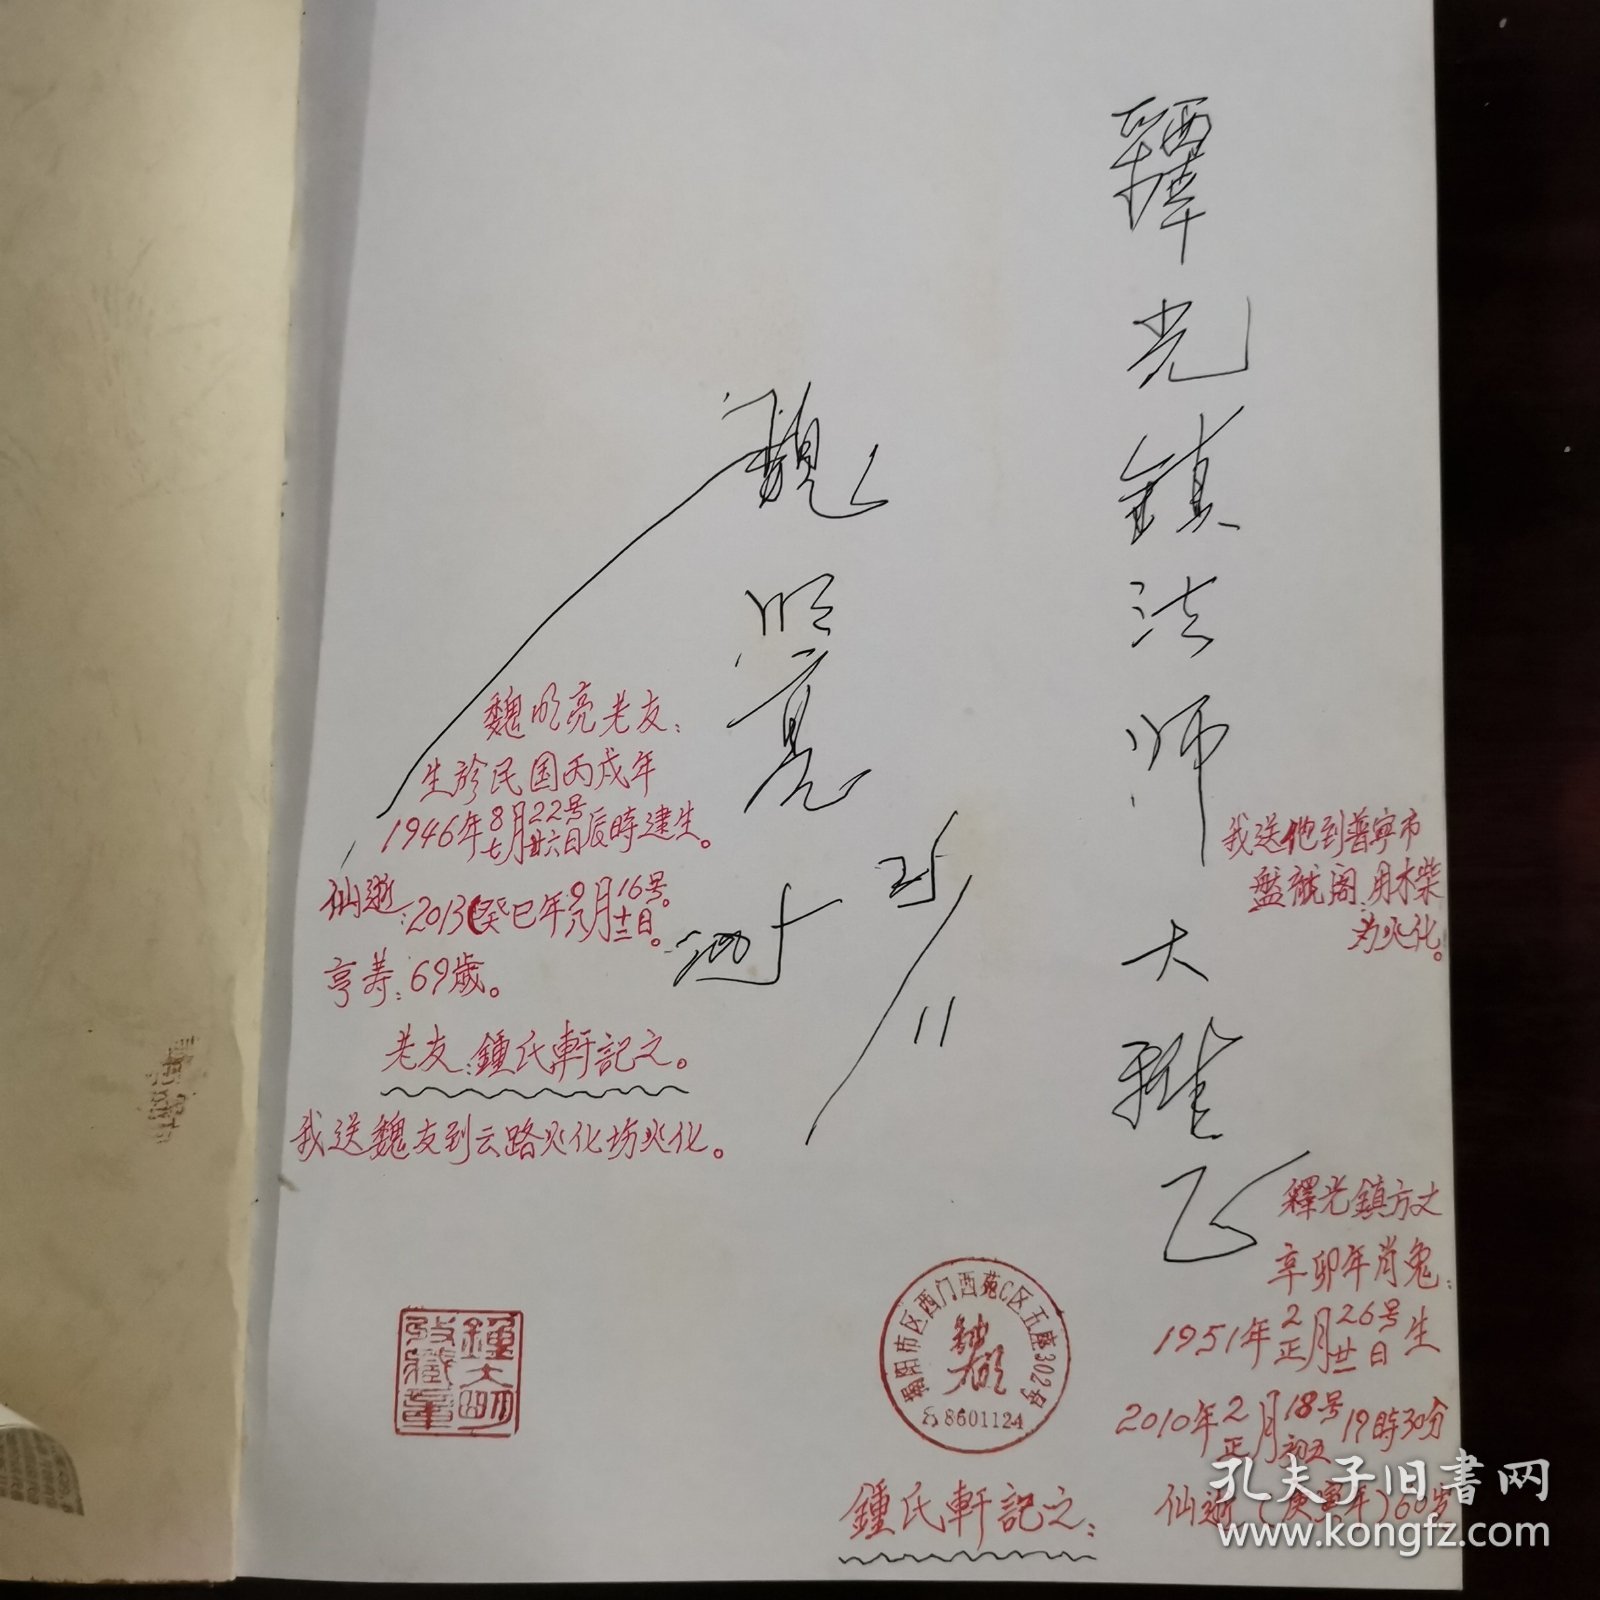 釋光鎮法师大雅正
魏明亮
魏明亮老友：
生於民国丙戌年
1946年8月22号
七月廿六日辰時建生。
仙逝：2013(癸巳年9月16号。
八月十二日。
亨寿：69歲。
老友：鍾氏軒記之。
我送魏友到云路火化场火化。
我送他到普宁市
盤龍阁．用木柴
为火化。
釋光鎮方丈
辛卯年肖兔：
1951年2月26号生
正月廿一日
2010年2月18号19時30分
正月初五
仙逝（庚寅年）60岁
鍾氏軒記之：
鍾大明
收藏章
揭阳市区西门西苑C区五座302号
8601124
孔夫子旧书网
www.kongfz.com